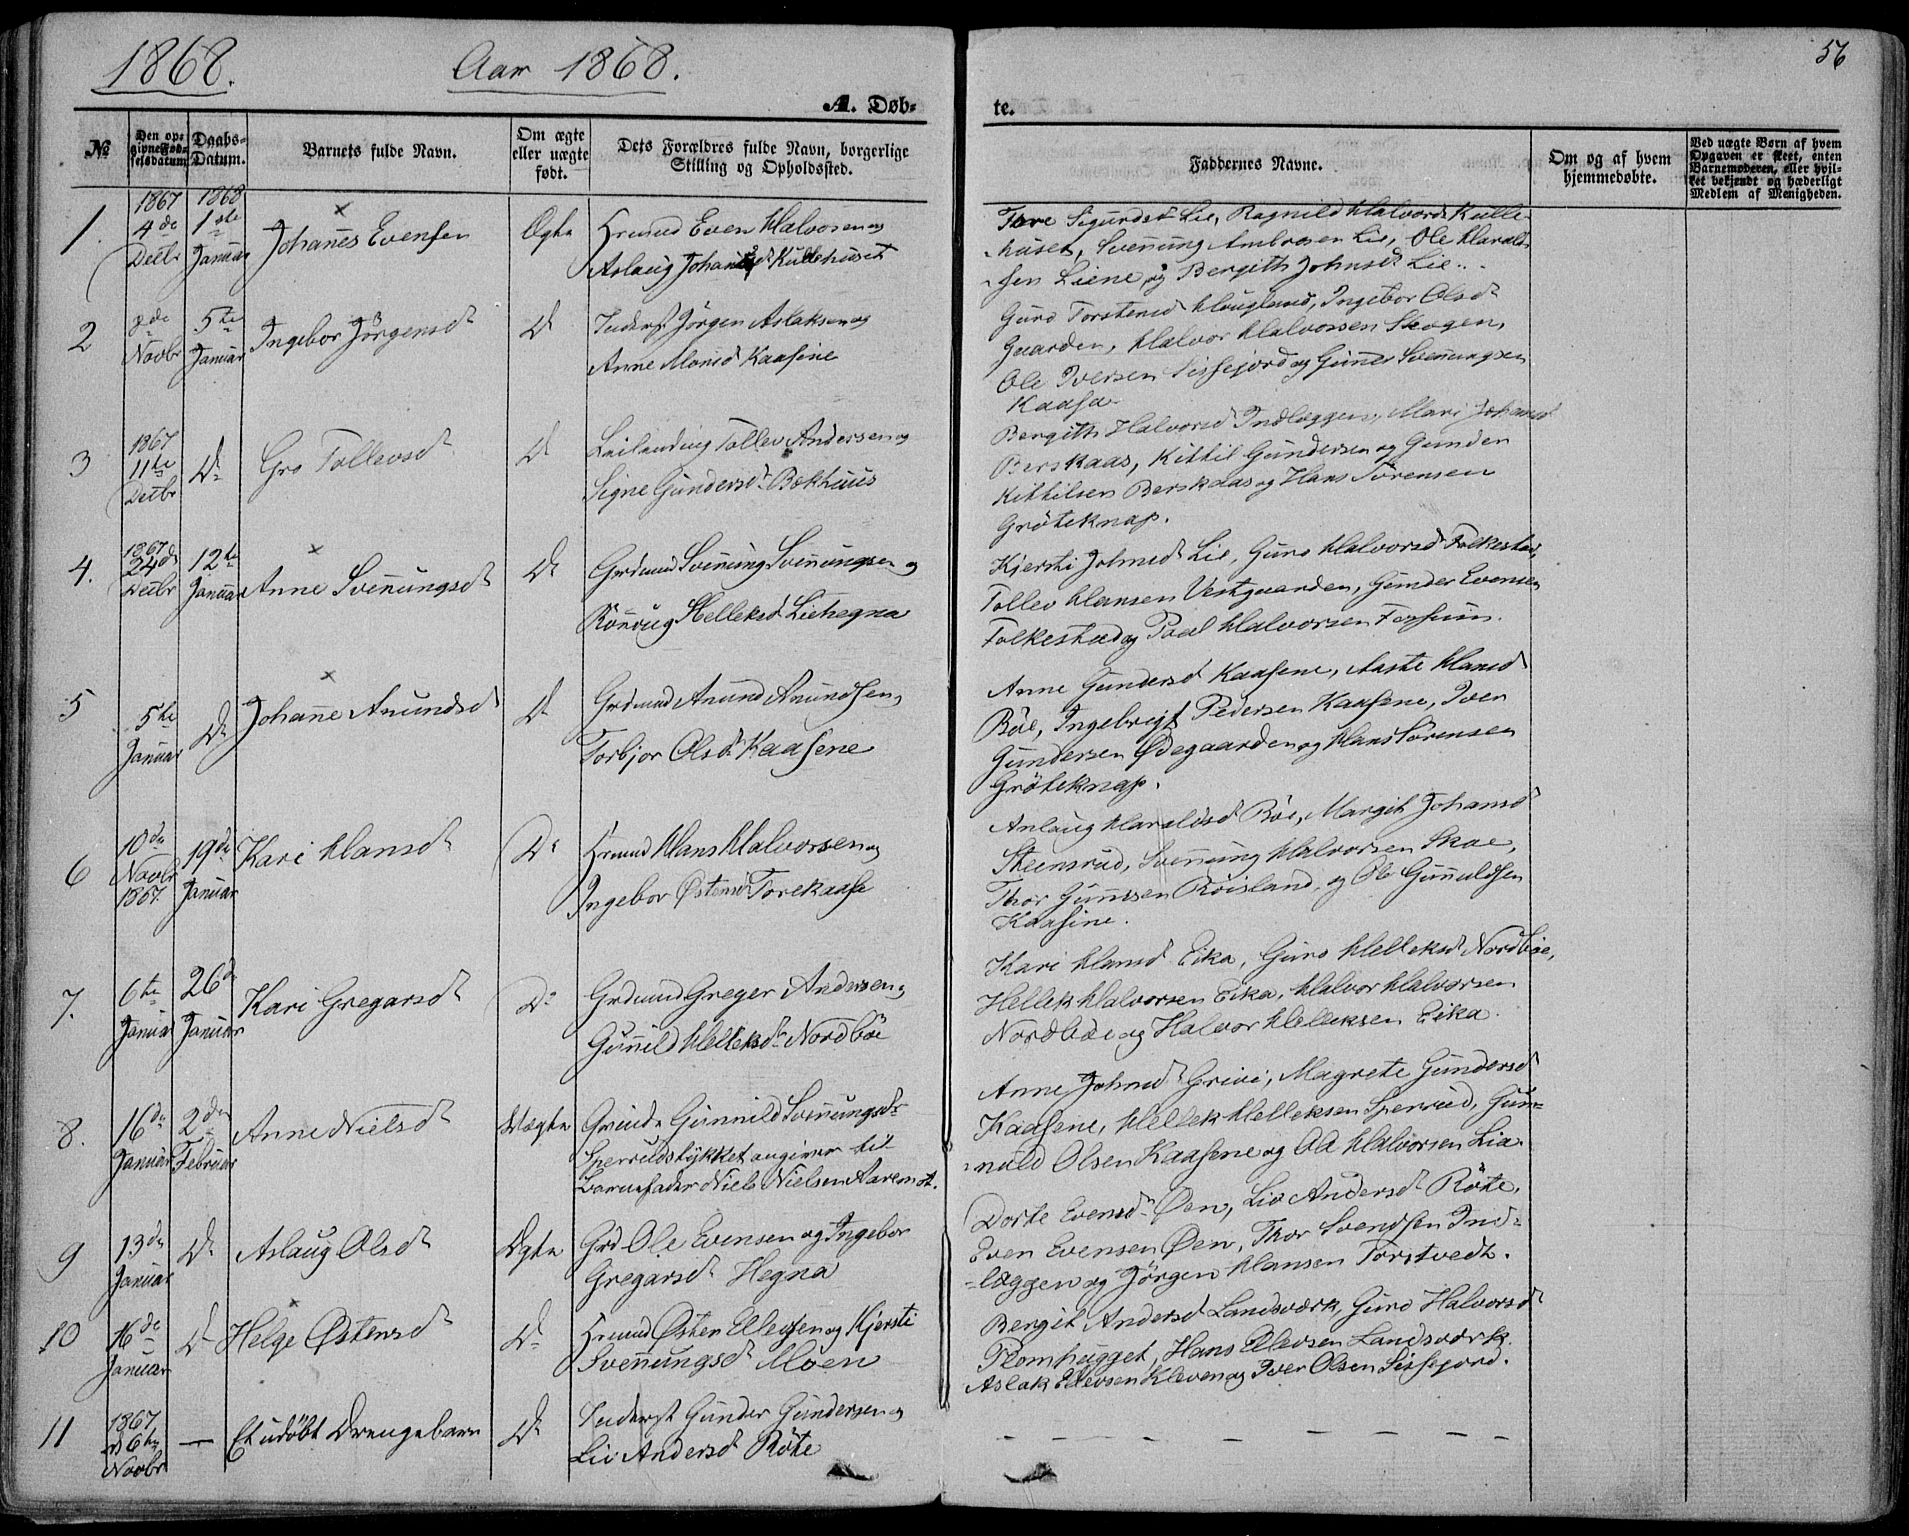 1868.
Aar 1868.
56
A. Døb-
te.
No
Den opgivne Fødselsdatum
Daabs-Datum.
Barnets fulde Navn.
Om ægte eller uægte født.
Dets Forældres fulde Navn, borgerlige Stilling og Opholdssted.
Faddernes Navne.
Om og af hvem hjemmedøbte.
Ved uægte Børn af hvem Opgaven er skeet, enten Barnemoderen, eller hvilket bekjendt og hæderligt Medlem af Menigheden.
1.
1867 4de Decbr
1868 1ste Januar
Johanes Evensen
Ægte
Hrmnd Even Halvorsen og
Aslaug Kullehuset
Tore Sigurdsd Lie, Ragnild Halvorsd Kulle-
huset, Svenung Ambrosen Lie, Ole Harald-
sen Liene og Bergith Johnsd Lie.
2
Novbr
5te Januar
Ingebor Jörgensd
Do
Inderst Jörgen Aslaksen og
Anne Kaasine
Guro Torstensd Haugland, Ingebor Olsd
Gaarden, Halvor Halvorsen Skogen,
Ole Iversen Sissejord og Gunder Svenungsen
Kaasa.
3
1867 11te Decbr
Do
Gro Tollevsd
Do
Leilending Tollev Andersen og
Signe Gundersd Bækhuus
Bergith Halvorsd Indlæggen, Mari Johansd
Berskaas, Kittil Gundersen og Gunder
Kittilsen Berskaas og Hans Sörensen
Gröteknap.
4.
1867 24de Decbr
12te Januar
Anne Svenungsd
Do
Grdmnd Svenung Svenungsen og
Rönnug Helleksd Liehegna
Kjersti Johnsd Lie, Guro Halvorsd Folkestad,
Tollev Hansen Vestgaarden, Gunder Evensen
Folkestad og Paal Halvorsen Forsum.
5
5te Januar
Do
Johane Anundsd
Do
Grdmnd Anund Anundsen,
Torbjor Olsd Kaasene
Anne Gundersd Kaasene, Aaste Hansd
Böe, Ingebrigt Pedersen Kaasene, Iver
Gundersen Ødegaarden og Hans Sörensen
Gröteknap.
6
10de Novbr 1867.
19de Januar
Kari Hansd
Do
Hrmnd Hans Halvorsen og
Ingebor Østensd Torekaase
Anlaug Haraldsd Böe, Margit Johansd
Steensrud, Svenung Halvorsen Skoe,
Thor Röisland, og Ole Gunnuldsen
Kaasine.
7.
6te Januar
26de Januar
Kari Gregarsd
Do
Grdmnd Greger Andersen og
Gunild Helleksd Nordböe
Kari Hansd Eika, Guro Helleksd Nordböe,
Hellek Halvorsen Eika, Halvor Halvorsen
Nordböe og Halvor Helleksen Eika.
8.
16de Januar
2den Februar
Anne Nielsd
Uægte
Gunnild Svenungsdr
Sperrudstykket angiver til
Barnefader Niels Nielsen Aaremot.
Anne Johnsd Grivi, Magrete Gundersd
Kaasene, Hellek Helleksen Sperrud, Gun-
nuld Olsen Kaasene og Ole Halvorsen Lia
9
13de Januar
Do
Aslaug Olsd
Ægte
Grd Ole Evensen og Ingebor
Gregarsd Hegna
Dorte Evensd Øen, Liv Andersd Röte,
Even Evensen Øen, Thor Svendsen Ind-
læggen og Jörgen Hansen Torstvedt.
10
16de Januar
Do
Helge Østensd
Do
Hrmnd Østen Ellevsen og Kjersti
Svenungsd Moen
Bergit Andersd Landsværk, Guro Halvorsd
Plomhugget, Hans Ellevsen Landsværk,
Aslak Ellevsen Kleven og Iver Olsen Sissejord.
11
1867 Novbr
—
Et udöbt Drengebarn
Do
Inderst Gunder Gundersen og
Liv Andersd Röte
— — — — — — —